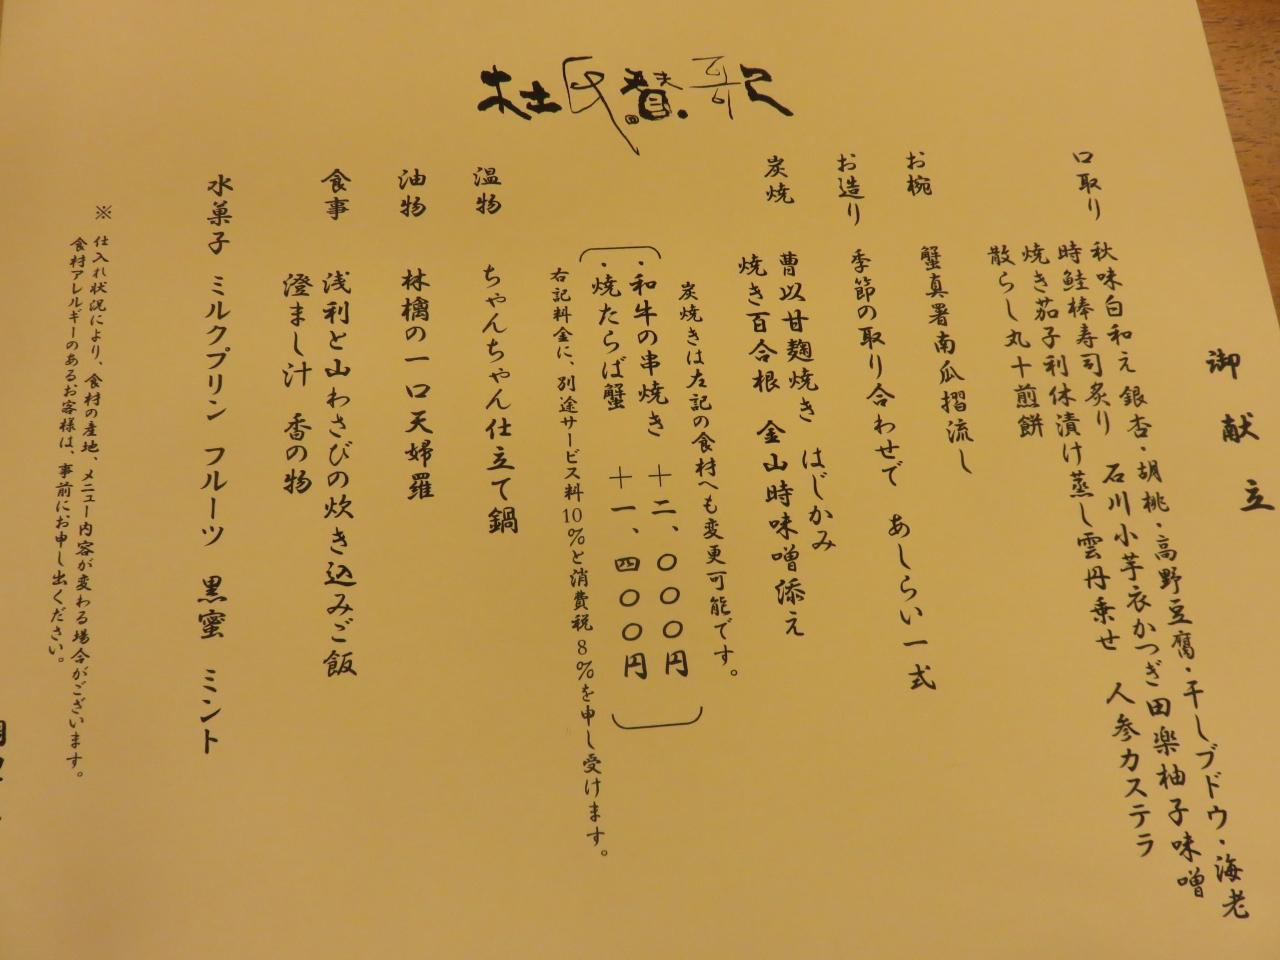 杜氏賛歌
御献立
口取り 秋味白和え 銀杏・胡桃・高野豆腐・干しブドウ・海老
時鮭棒寿司炙り 石川小芋衣かつぎ田楽柚子味噌
焼き茄子利休漬け蒸し雲丹乗せ 人参カステラ
散らし丸十煎餅
お椀 蟹真署南瓜摺流し
お造り 季節の取り合わせで あしらい一式
炭焼 曹以甘麹焼き はじかみ
焼き百合根 金山時味噌添え
炭焼きは左記の食材へも変更可能です。
・和牛の串焼き 十二、〇〇〇円
・焼たらば蟹 十一、四〇〇円
右記料金に、別途サービス料10%と消費税8%を申し受けます。
温物 ちゃんちゃん仕立て鍋
油物 林檎の一口天婦羅
食事 浅利と山わさびの炊き込みご飯
澄まし汁 香の物
水菓子 ミルクプリン フルーツ 黒蜜 ミント
※ 仕入れ状況により、食材の産地、メニュー内容が変わる場合がございます。
食材アレルギーのあるお客様は、事前にお申し出ください。